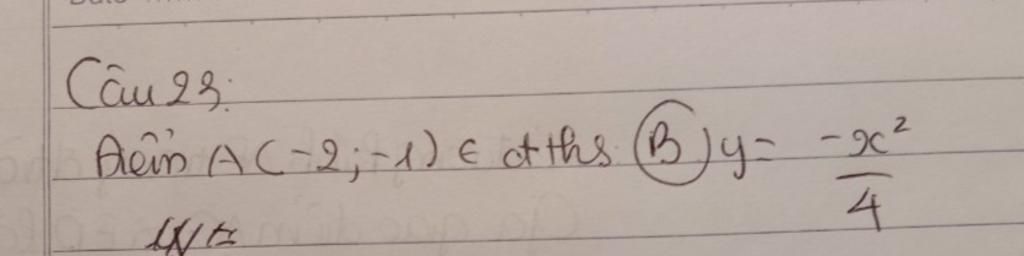 Câu 23:
Điểm A(-2;-1) ∈ đths (B) y = -x²/4